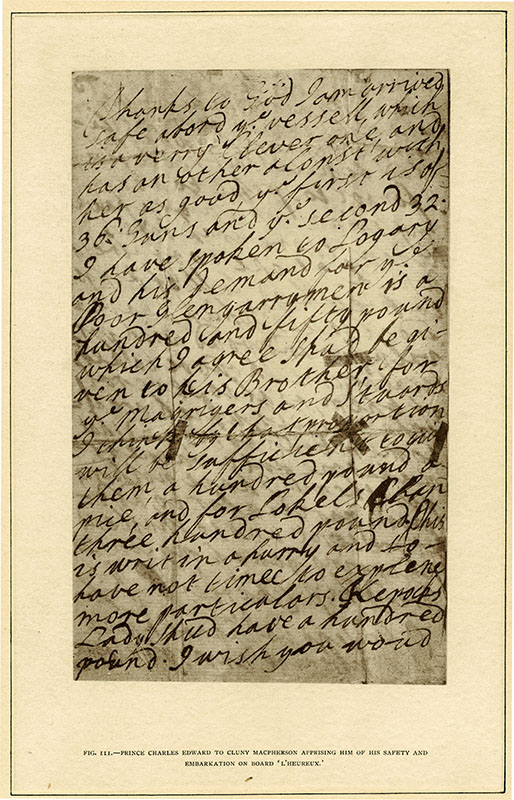 Thanks to God I am arrived
safe abord ye vessell which
is a verry Clever one and
has an other alonst with
her as good, ye first is of
36: Guns and ye second 32:
I have spoken to Logary
and his Demand for ye
Poor Glengarrymen is a
hundred and fifty pound
which I agree shud be gi-
ven to his Brother, for
ye Magrigers and Stuards
I think by that proportion
will be sufficient to
them a hundred pound a
pice, and for Lokels Clan
three hundred pound, this
is writ in a hurry and so
have not time to explene
more particolars.
Lady shud have a hundred
pound. I wish you woud
FIG. III.—PRINCE CHARLES EDWARD TO CLUNY MACPHERSON APPRISING HIM OF HIS SAFETY AND
EMBARKATION ON BOARD 'L'HEUREUX.'